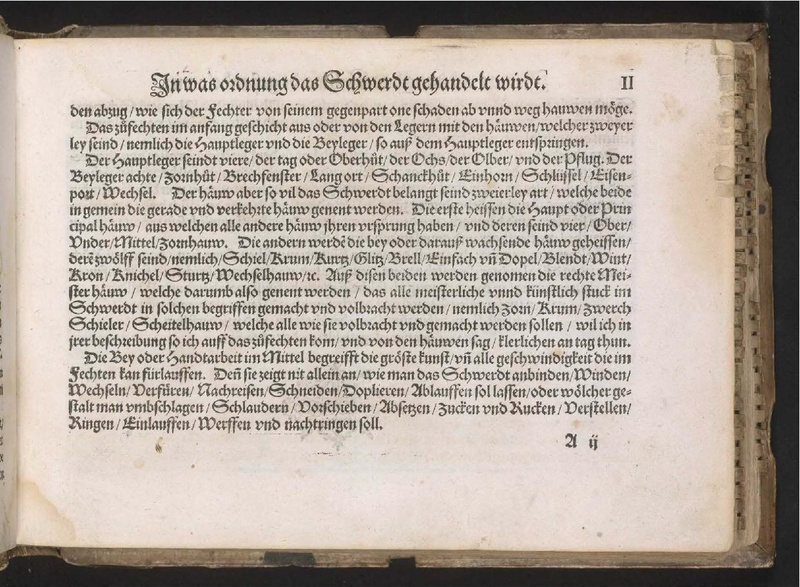 In was ordnung das Schwerdt gehandelt wirdt. II
den abzug / wie sich der Fechter von seinem gegenpart one schaden ab vnnd weg hauwen möge.
Das zůfechten im anfang geschicht aus oder von den Legern mit den häuwen / welcher zweyer
ley seind / nemlich die Hauptleger vnd die Beyleger / so auß dem Hauptleger entspringen.
Der Hauptleger seindt viere / der tag oder Oberhůt / der Ochs / der Olber / vnd der Pflug. Der
Beyleger achte / Zornhůt / Brechfenster / Lang ort / Schranckhůt / Einhorn / Schlüssel / Eisen-
port / Wechsel. Der häuw aber so vil das Schwerdt belangt seind zweierley art / welche beide
in gemein die gerade vnd verkehrte häuw genent werden. Die erste heissen die Haupt oder Prin
cipal häuw / aus welchen alle andere häuw jhren vrsprung haben / vnd deren seind vier / Ober /
Vnder / Mittel / Zornhauw. Die andern werdē die bey oder darauß wachsende häuw geheissen /
derē zwölff seind / nemlich / Schiel / Krum / Kurtz / Glitz / Brell / Einfach vñ Dopel / Blendt / Wint /
Kron / Knichel / Sturtz / Wechselhauw / ꝛc. Auß disen beiden werden genomen die rechte Mei-
ster häuw / welche darumb also genent werden / das alle meisterliche vnnd künstlich stuck im
Schwerdt in solchen begriffen gemacht vnd volbracht werden / nemlich Zorn / Krum / Zwerch
Schieler / Scheitelhauw / welche alle wie sie volbracht vnd gemacht werden sollen / wil ich in
jrer beschreibung so ich auff das zůfechten kom / vnd von den häuwen sag / klerlichen an tag thun.
Die Bey oder Handtarbeit im Mittel begreifft die gröste kunst / vñ alle geschwindigkeit die im
Fechten kan fürlauffen. Deñ sie zeigt nit allein an / wie man das Schwerdt anbinden / Winden /
Wechseln / Verfüren / Nachreisen / Schneiden / Doplieren / Ablauffen sol lassen / oder wölcher ge-
stalt man vmbschlagen / Schlaudern / Vorschieben / Absetzen / Zucken vnd Rucken / Verstellen /
Ringen / Einlauffen / Werffen vnd nachtringen soll.
A ij